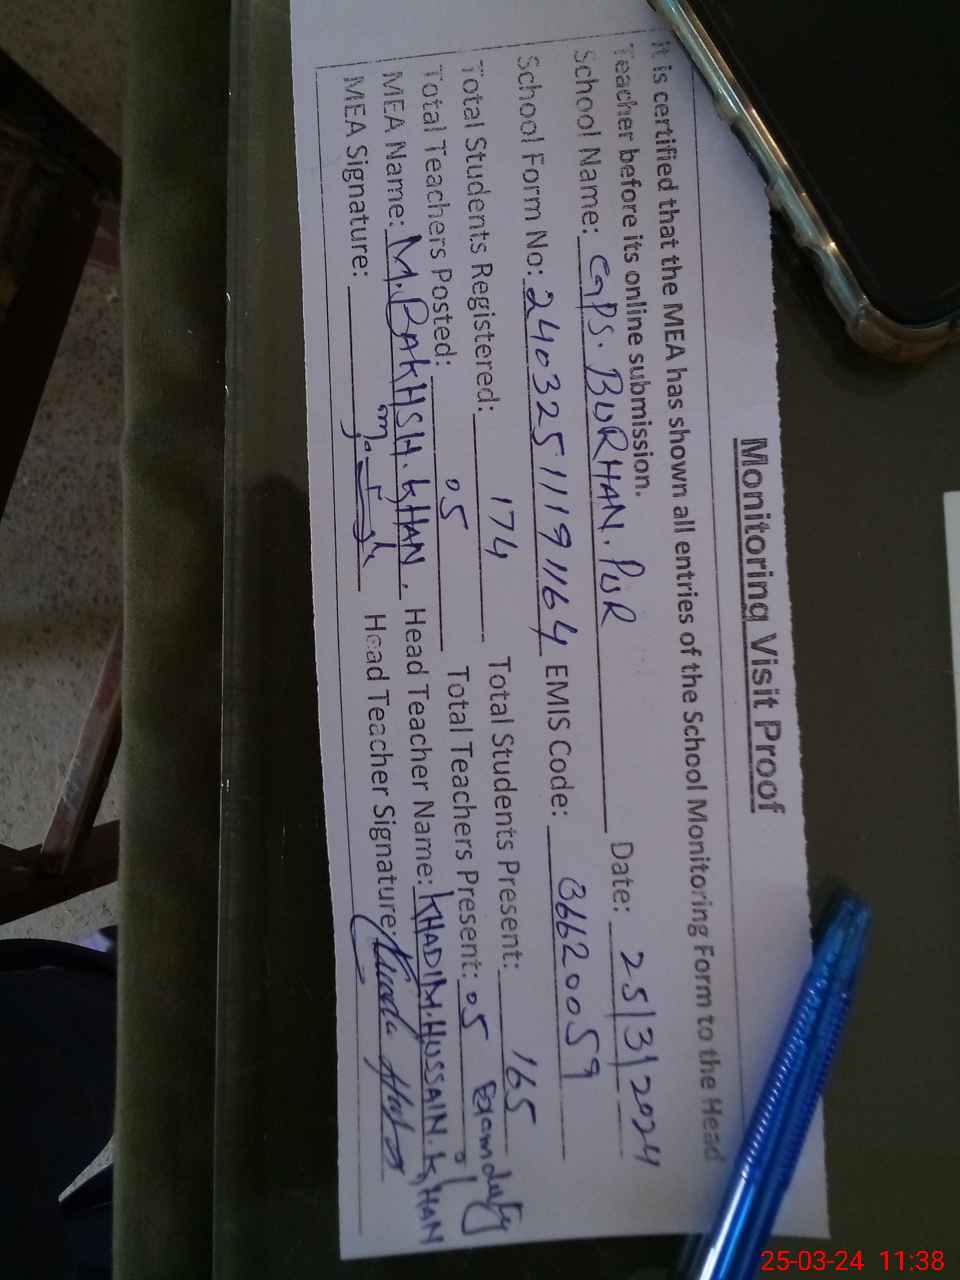 Monitoring Visit Proof
It is certified that the MEA has shown all entries of the School Monitoring Form to the Head
Teacher before its online submission.
School Name: GPS. BURHAN. PUR Date: 25/3/2024
School Form No: 24032511191164 EMIS Code: 36620059
Total Students Registered: 174 Total Students Present: 165
Total Teachers Posted: 05 Total Teachers Present: 05
MEA Name: M.BAKHSH.KHAN. Head Teacher Name: KHADIM.HUSSAIN.KHAN
MEA Signature: Head Teacher Signature:
25-03-24 11:38